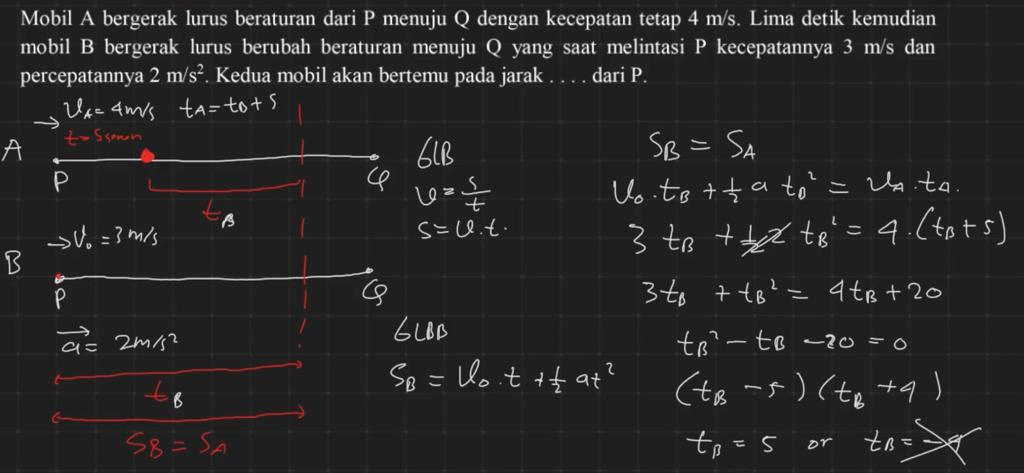 Mobil A bergerak lurus beraturan dari P menuju Q dengan kecepatan tetap 4 m/s. Lima detik kemudian
mobil B bergerak lurus berubah beraturan menuju Q yang saat melintasi P kecepatannya 3 m/s dan
percepatannya 2 m/s². Kedua mobil akan bertemu pada jarak . . . . dari P.
→ VA = 4 m/s tA = tB + 5
A
P
Q
tB
→ V₀ = 3 m/s
B
P
Q
a = 2 m/s²
tB
SB = SA
GLB
v = s/t
s = v.t.
GLBB
SB = V₀.t + ½ at²
SB = SA
V₀.tB + ½ a tB² = VA.tA.
3 tB + ½ 2 tB² = 4.(tB + 5)
3tB + tB² = 4tB + 20
tB² – tB – 20 = 0
(tB – 5) (tB + 4)
tB = 5 or tB = –4